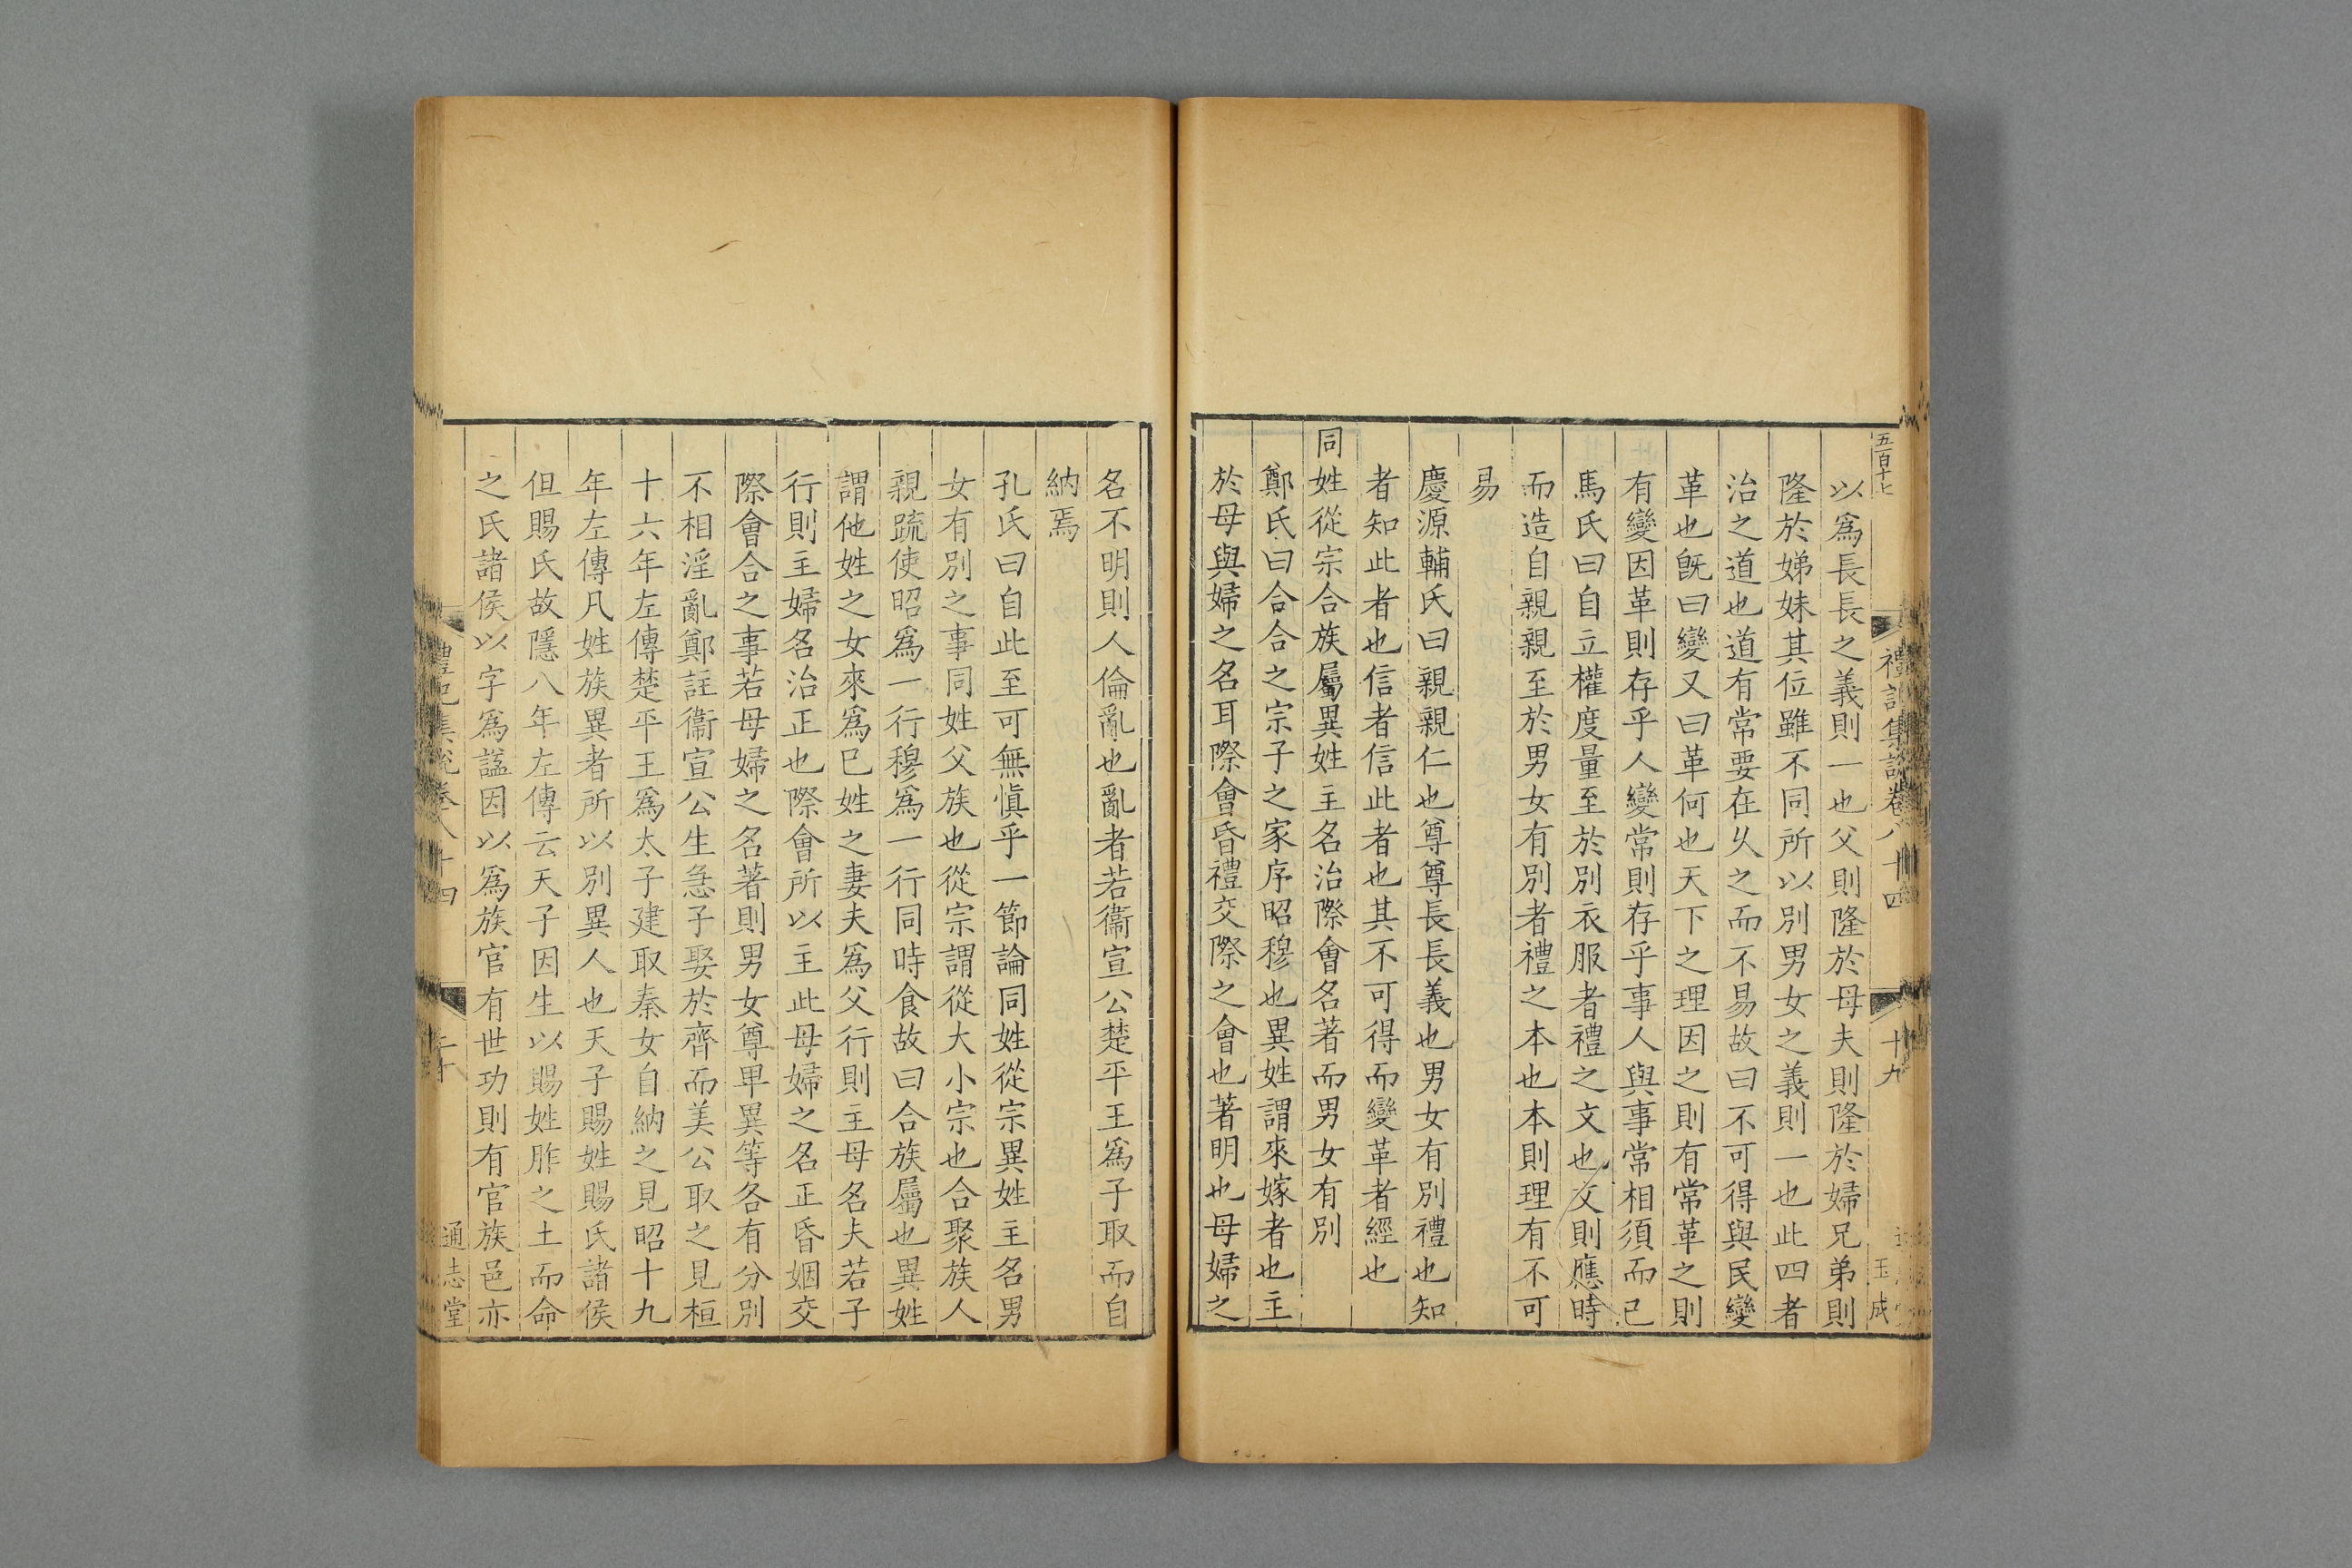 五百十七
禮記集說卷八十四
十九
玉成
以爲長長之義則一也父則隆於母夫則隆於婦兄弟則
隆於娣妹其位雖不同所以別男女之義則一也此四者
治之道也道有常要在乆之而不易故曰不可得與民變
革也旣曰變又曰革何也天下之理因之則有常革之則
有變因革則存乎人變常則存乎事人與事常相須而已
馬氏曰自立權度量至於別衣服者禮之文也文則應時
而造自親親至於男女有別者禮之本也本則理有不可
易
慶源輔氏曰親親仁也尊尊長長義也男女有別禮也知
者知此者也信者信此者也其不可得而變革者經也
同姓從宗合族屬異姓主名治際會名著而男女有別
鄭氏曰合合之宗子之家序昭穆也異姓謂來嫁者也主
於母與婦之名耳際會昏禮交際之會也著明也母婦之
名不明則人倫亂也亂者若衞宣公楚平王爲子取而自
納焉
孔氏曰自此至可無愼乎一節論同姓從宗異姓主名男
女有別之事同姓父族也從宗謂從大小宗也合聚族人
親䟽使昭爲一行穆爲一行同時食故曰合族屬也異姓
謂他姓之女來爲已姓之妻夫爲父行則主母名夫若子
行則主婦名治正也際會所以主此母婦之名正昏姻交
際會合之事若母婦之名著則男女尊卑異等各有分別
不相淫亂鄭註衞宣公生急子娶於齊而美公取之見桓
十六年左傳楚平王爲太子建取秦女自納之見昭十九
年左傳凡姓族異者所以別異人也天子賜姓賜氏諸侯
但賜氏故隱八年左傳云天子因生以賜姓胙之土而命
之氏諸侯以字爲諡因以爲族官有世功則有官族邑亦
禮記集說卷八十四
二十
通志堂